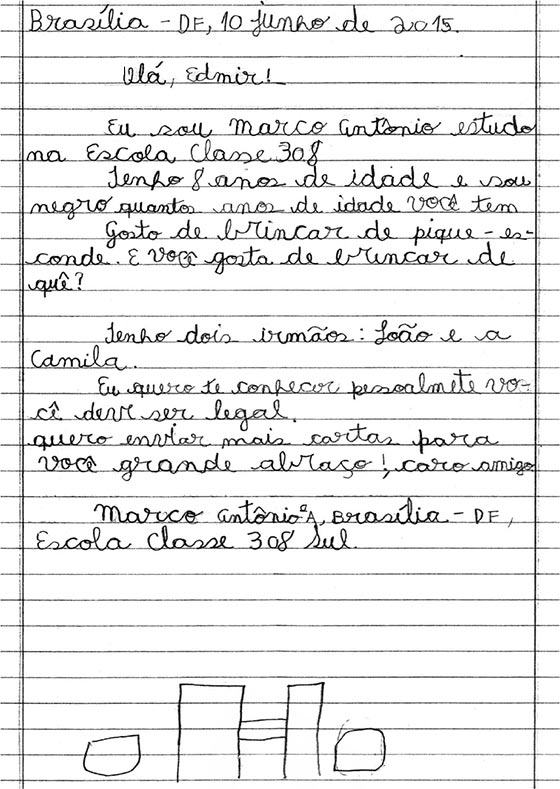 Brasília - DF, 10 junho de 2015.
Olá, Edmir!
Eu sou Marco Antônio estudo
na Escola Classe 308
Tenho 8 anos de idade e sou
negro quantos anos de idade você tem
Gosto de brincar de pique - es-
conde. E você gosta de brincar de
quê?
Tenho dois irmãos: João e a
Camila.
Eu quero te conhecer pessoalmete vo-
cê deve ser legal.
quero enviar mais cartas para
você grande abraço!, caro amigo
Marco Antônio A, Brasília - DF,
Escola Classe 308 Sul.